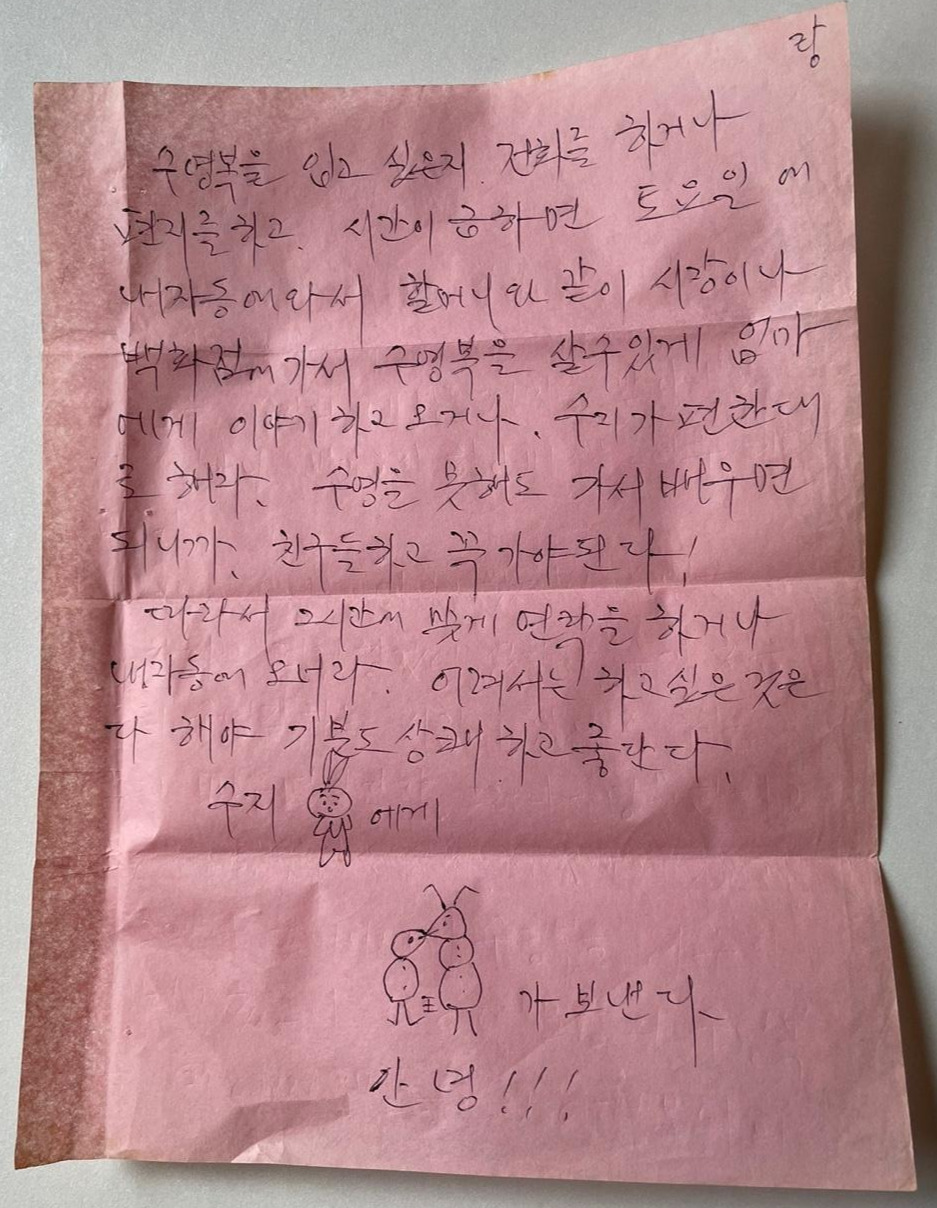 랑
수영복을 입고 싶은지. 전화를 하거나
편지를 하고. 시간이 급하면 토요일에
내자동에 와서 할머니와 같이 시장이나
백화점에 가서 수영복을 살 수 있게 엄마
에게 이야기 하고 오거나. 수지가 편한대
로 해라. 수영을 못해도 가서 배우면
되니까. 친구들하고 꼭 가야 된다!
따라서 그 시간에 맞게 연락을 하거나
내자동에 오너라. 어려서는 하고싶은 것은
다 해야 기분도 상쾌하고 좋단다.
수지 에게
가 보낸다.
안녕!!!